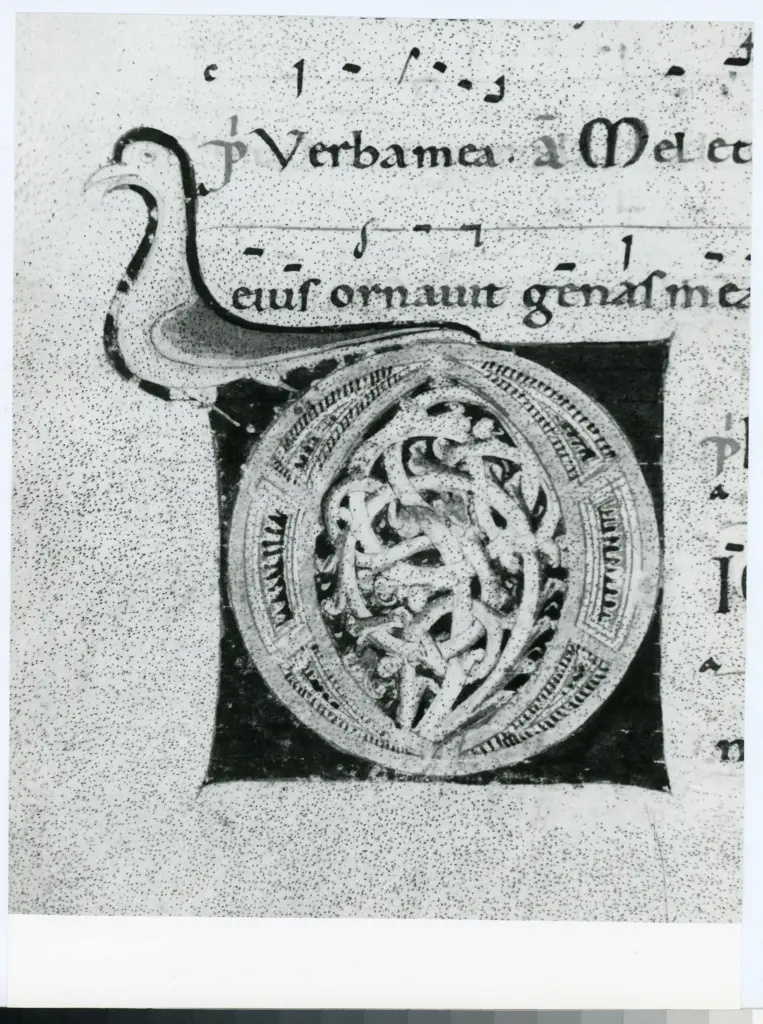 p̄ Verba mea. ā Mel et
eiuſ ornauit genaſ mea
p̄